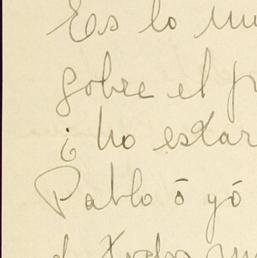 Es lo mu
sobre el p
¿ no estar
Pablo ó yó